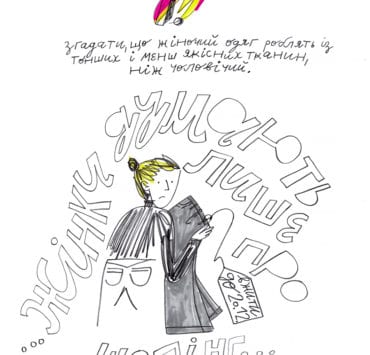 згадати, що жіночий одяг роблять із
тонших і менш якісних тканин,
ніж чоловічий.
...жінки думають
лише про
вжити
до 20.12